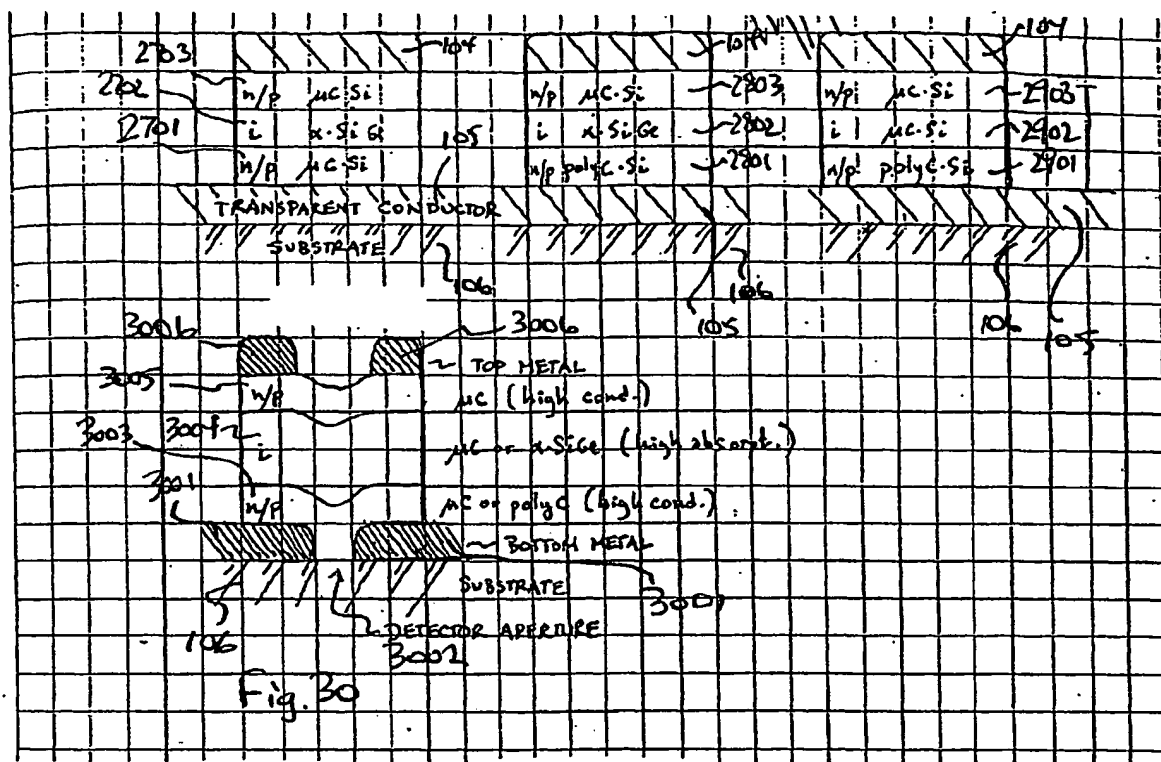 2703 104 104 104
2702 n/p µC-Si n/p µC-Si 2803 n/p µC-Si 2903
2701 i α-SiGe 105 i α-SiGe 2802 i µC-Si 2902
n/p µC-Si n/p polyC-Si 2801 n/p polyC-Si 2901
TRANSPARENT CONDUCTOR
SUBSTRATE
106 106 106
105 105
3006 3006
TOP METAL
3005 n/p µC (high cond.)
3003 3004 i µC or α-SiGe (high absorpt.)
3001
n/p µC or polyC (high cond.)
BOTTOM METAL
SUBSTRATE
3001
106 DETECTOR APERTURE
3002
Fig. 30